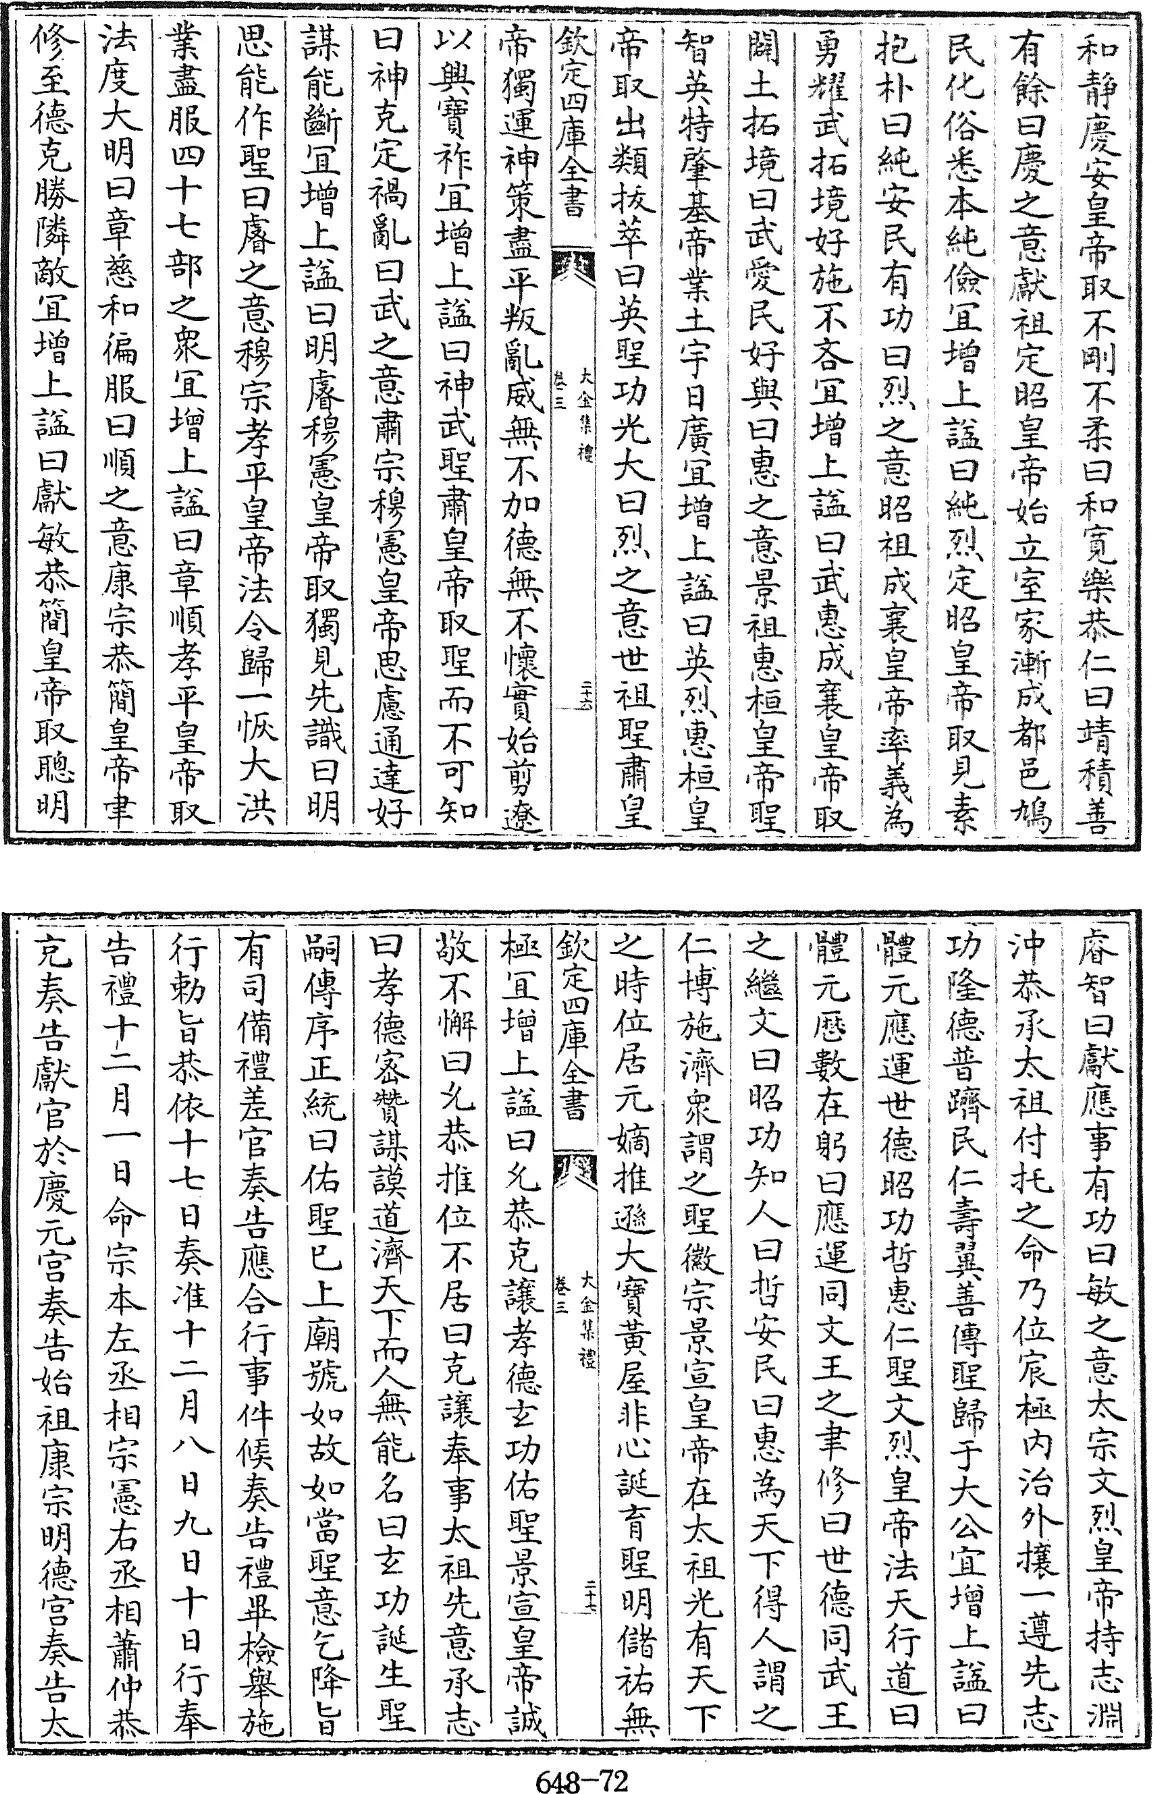 和靜慶安皇帝取不剛不柔曰和寛樂恭仁曰靖積善
有餘曰慶之意獻祖定昭皇帝始立室家漸成都邑鳩
民化俗悉本純儉宜增上諡曰純烈定昭皇帝取見素
抱朴曰純安民有功曰烈之意昭祖成襄皇帝率義為
勇耀武拓境好施不吝宜增上諡曰武惠成襄皇帝取
闢土拓境曰武愛民好與曰惠之意景祖惠桓皇帝聖
智英特肇基帝業土宇日廣宜增上諡曰英烈惠桓皇
帝取出類拔萃曰英聖功光大曰烈之意世祖聖肅皇
欽定四庫全書
大金集禮
卷三
二十六
帝獨運神策盡平叛亂威無不加德無不懷實始剪遼
以興寶祚宜增上諡曰神武聖肅皇帝取聖而不可知
曰神克定禍亂曰武之意肅宗穆憲皇帝思慮通達好
謀能斷宜增上諡曰明睿穆憲皇帝取獨見先識曰明
思能作聖曰睿之意穆宗孝平皇帝法令歸一恢大洪
業盡服四十七部之衆宜增上諡曰章順孝平皇帝取
法度大明曰章慈和徧服曰順之意康宗恭簡皇帝聿
修至德克勝隣敵宜增上諡曰獻敏恭簡皇帝取聰明
睿智曰獻應事有功曰敏之意太宗文烈皇帝持志淵
沖恭承太祖付托之命乃位宸極内治外攘一遵先志
功隆德普躋民仁壽翼善傳聖歸于大公宜增上諡曰
體元應運世德昭功哲惠仁聖文烈皇帝法天行道曰
體元厯數在躬曰應運同文王之聿修曰世德同武王
之繼文曰昭功知人曰哲安民曰惠為天下得人謂之
仁博施濟衆謂之聖徽宗景宣皇帝在太祖光有天下
之時位居元嫡推遜大寶黄屋非心誕育聖明儲祐無
欽定四庫全書
大金集禮
卷三
二十七
極宜增上諡曰允恭克讓孝德玄功佑聖景宣皇帝誠
敬不懈曰允恭推位不居曰克讓奉事太祖先意承志
曰孝德密贊謀謨道濟天下而人無能名曰玄功誕生聖
嗣傳序正統曰佑聖已上廟號如故如當聖意乞降旨
有司備禮差官奏告應合行事件候奏告禮畢檢舉施
行勅旨恭依十七日奏准十二月八日九日十日行奉
告禮十二月一日命宗本左丞相宗憲右丞相蕭仲恭
充奏告獻官於慶元宫奏告始祖康宗明德宫奏告太
648-72